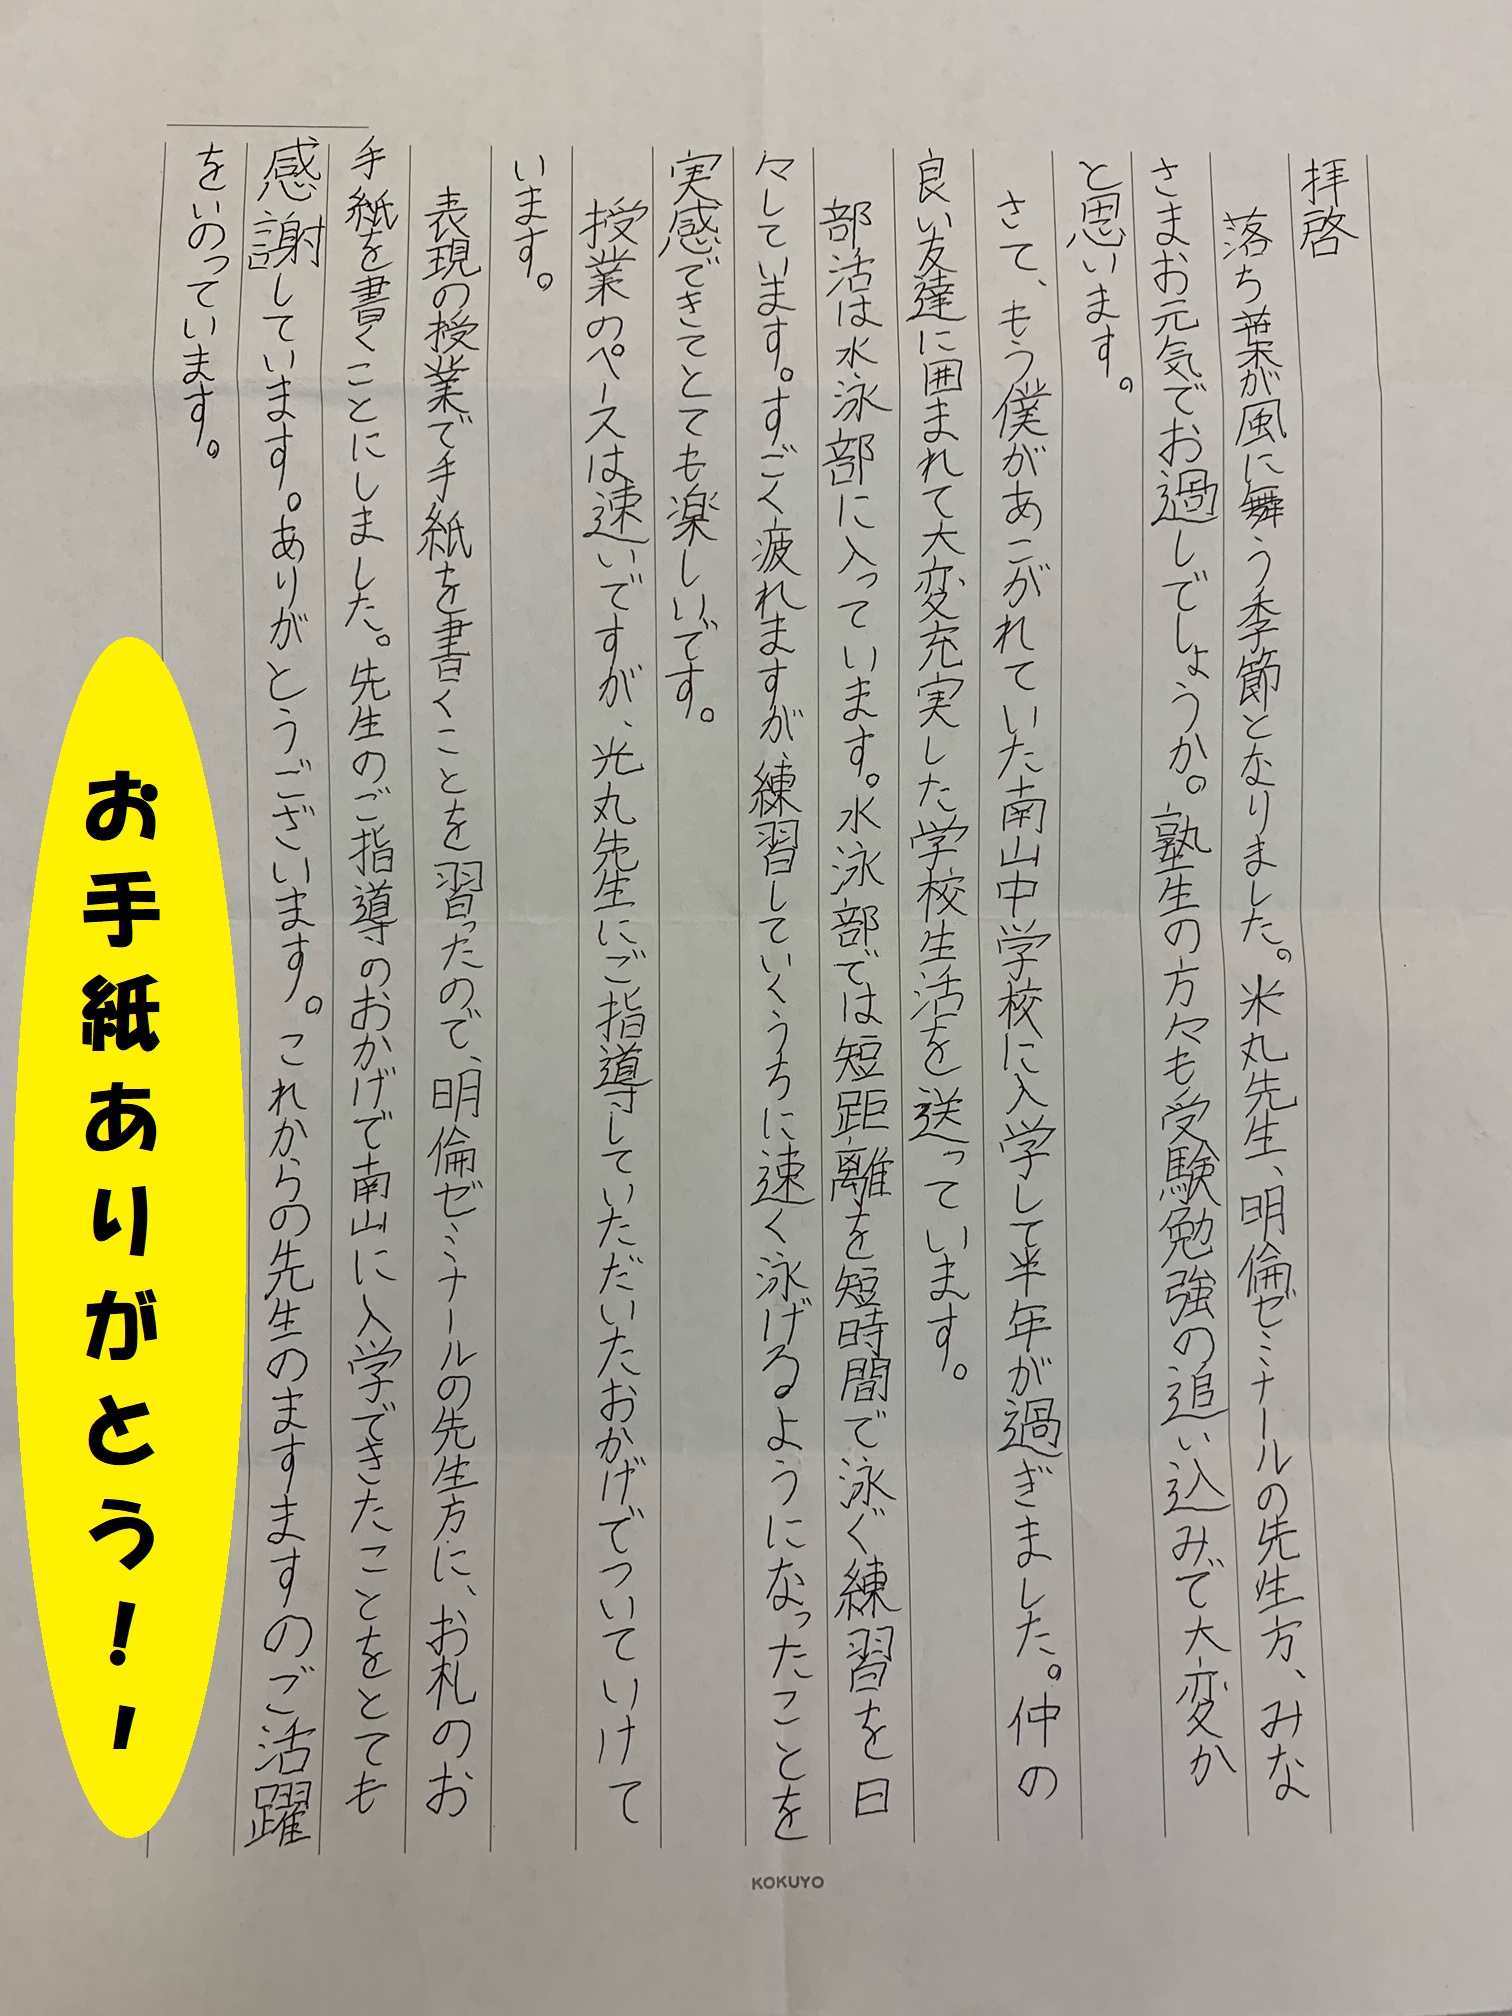 拝啓
落ち葉が風に舞う季節となりました。米丸先生、明倫ゼミナールの先生方、みな
さまお元気でお過しでしょうか。塾生の方々も受験勉強の追い込みで大変か
と思います。
さて、もう僕があこがれていた南山中学校に入学して半年が過ぎました。仲の
良い友達に囲まれて大変充実した学校生活を送っています。
部活は水泳部に入っています。水泳部では短距離を短時間で泳ぐ練習を日
々しています。すごく疲れますが、練習していくうちに速く泳げるようになったことを
実感できてとても楽しいです。
授業のペースは速いですが、光丸先生にご指導していただいたおかげでついていけて
います。
表現の授業で手紙を書くことを習ったので、明倫ゼミナールの先生方に、お礼のお
手紙を書くことにしました。先生のご指導のおかげで南山に入学できたことをとても
感謝しています。ありがとうございます。これからの先生のますますのご活躍
をいのっています。
お手紙ありがとう！！
KOKUYO